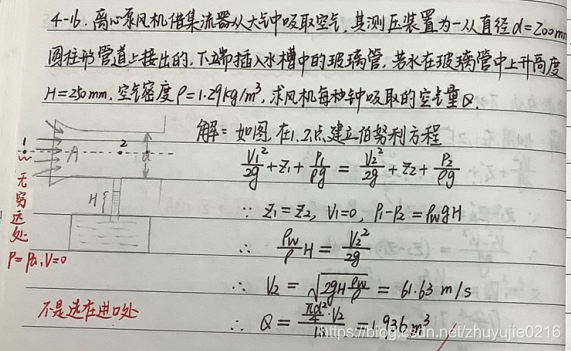 4-16. 离心泵风机借集流器从大气中吸取空气,其测压装置为一从直径d=200mm
圆柱形管道上接出的,下端插入水槽中的玻璃管,若水在玻璃管中上升高度
H=250mm. 空气密度ρ=1.29kg/m³,求风机每秒钟吸取的空气量Q.
解: 如图, 在1,2点建立伯努利方程
V₁²/2g + Z₁ + P₁/ρg = V₂²/2g + Z₂ + P₂/ρg
∵ Z₁=Z₂, V₁=0, P₁-P₂=ρwgH
∴ ρw/ρ H = V₂²/2g
∴ V₂ = √(2gH ρw/ρ) = 61.63 m/s
∴ Q = πd²/4 · V₂ = 1.936 m³
1
A
2
d
H
无穷远处
P=Pa, V=0
不是选在进口处
https://blog.csdn.net/zhuyujie0216